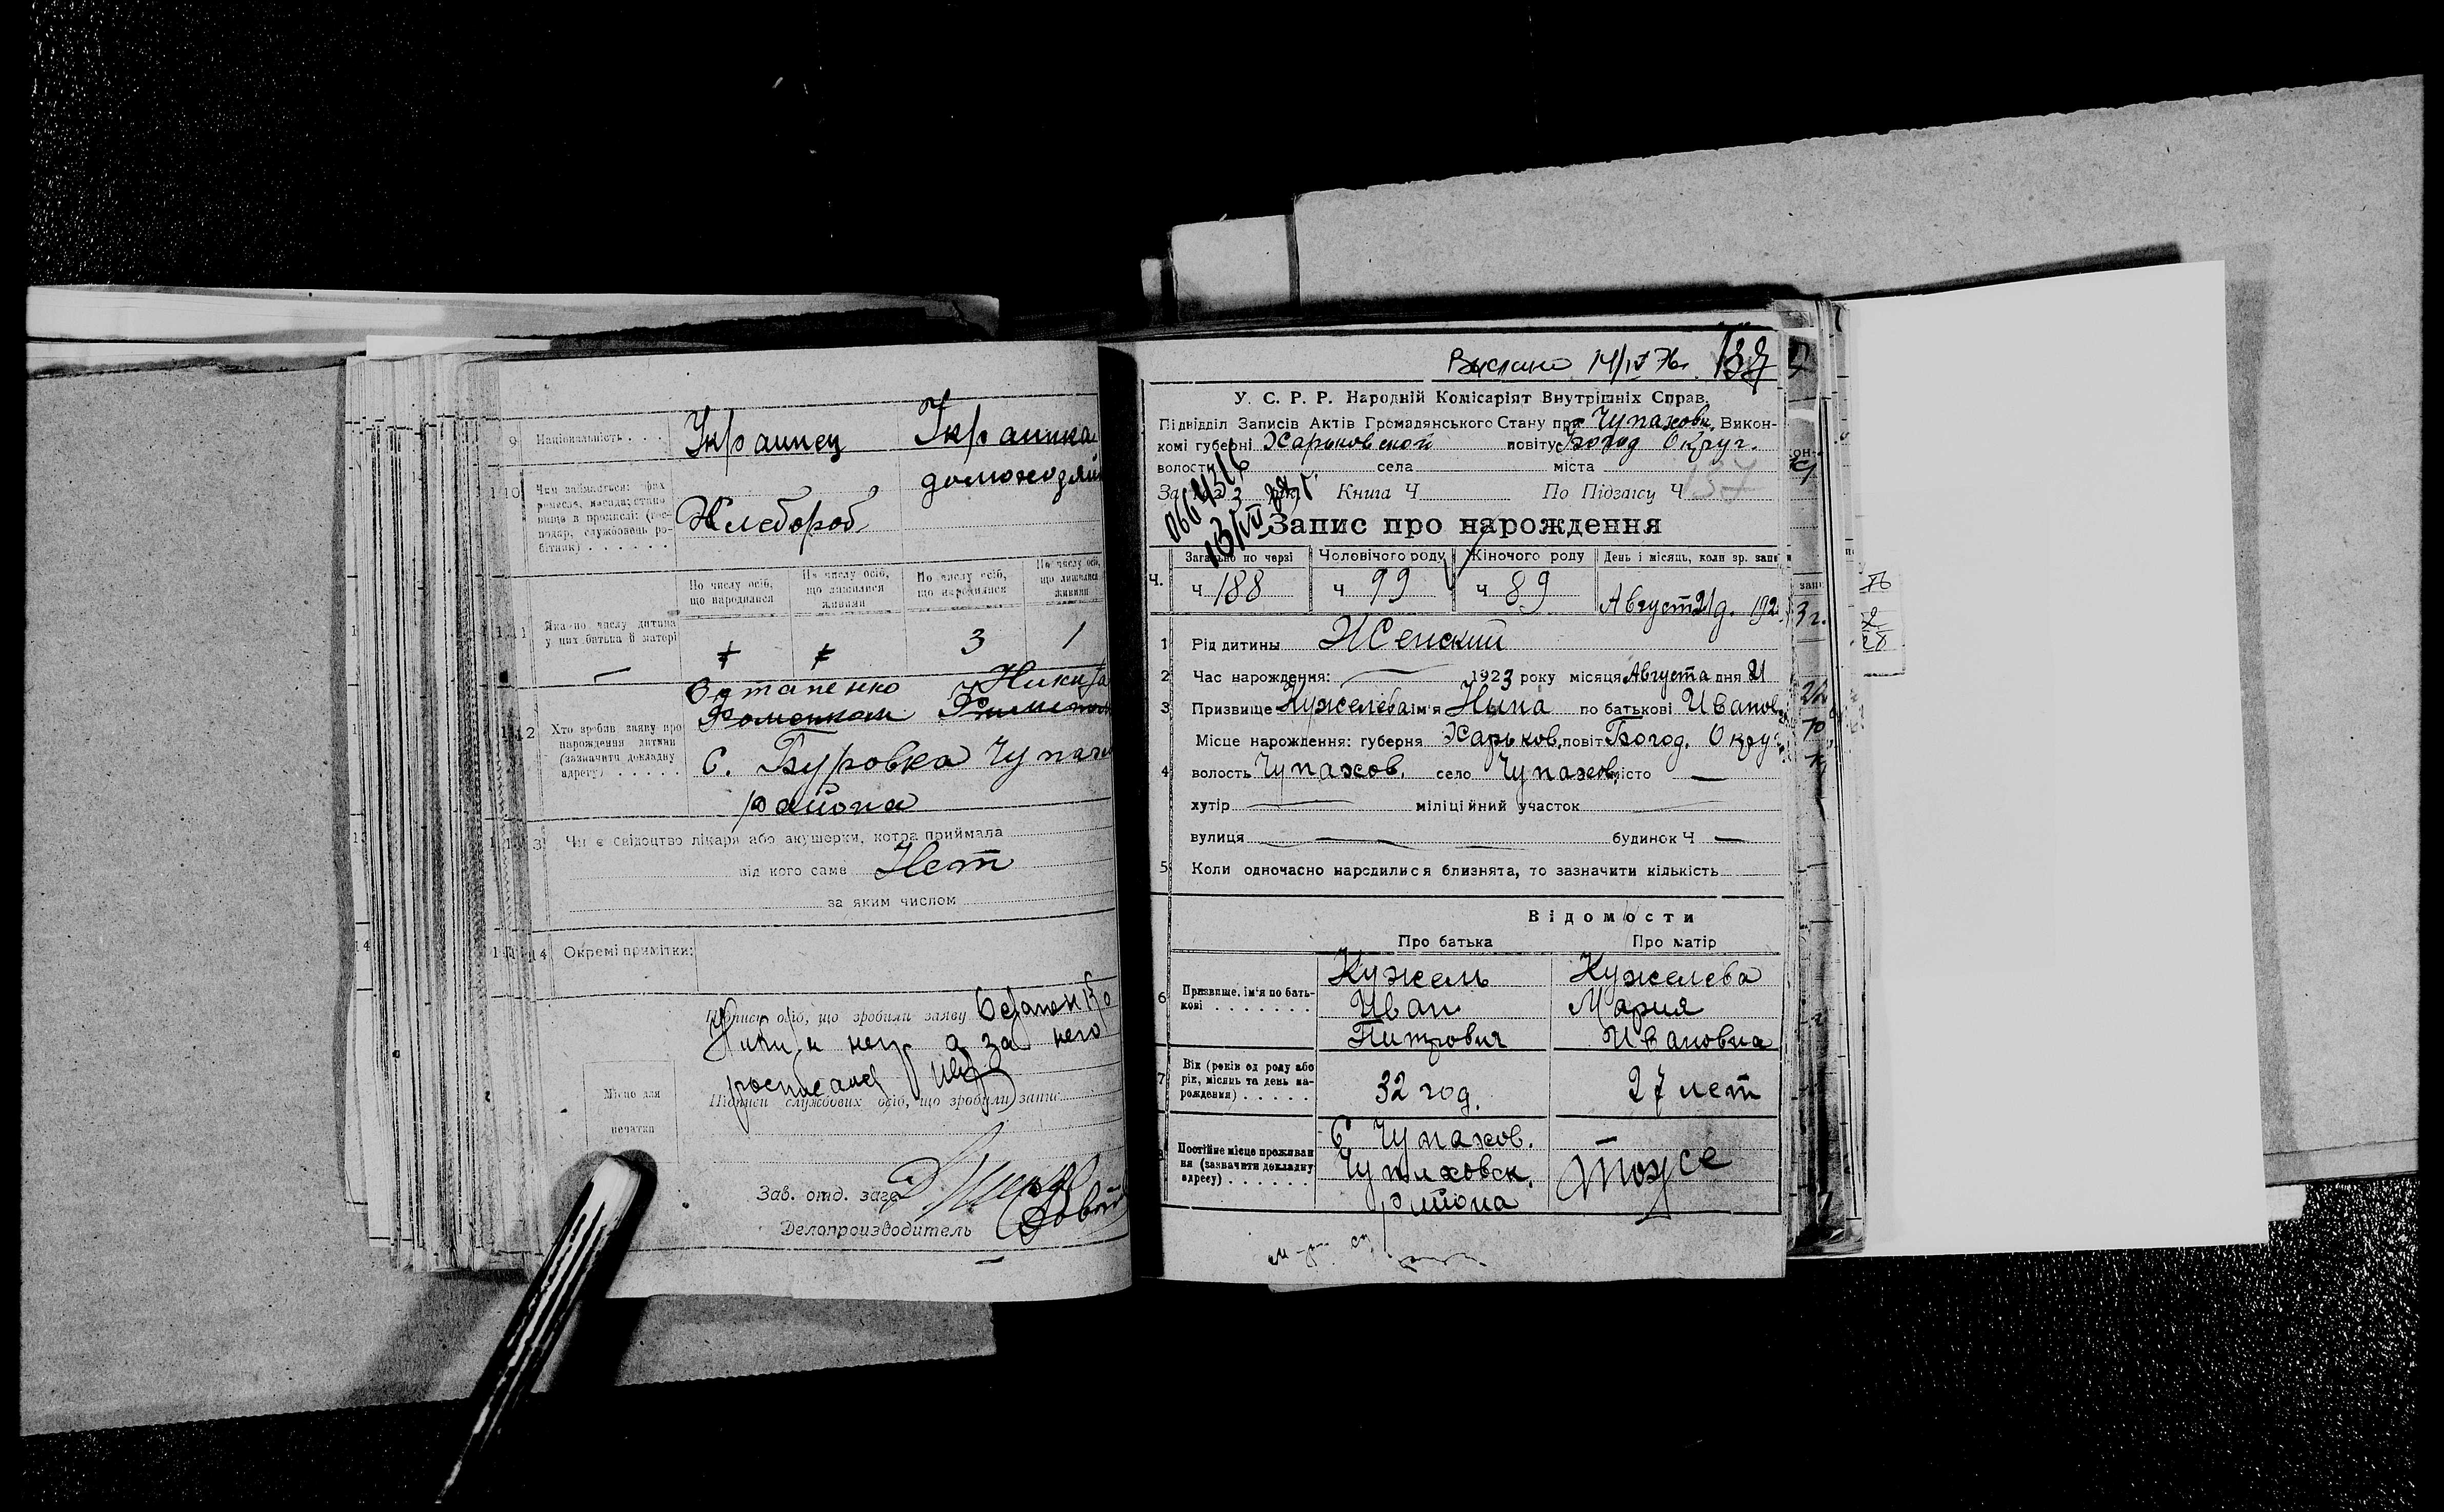 9 Національність . . . Украинец Украинка
10 Чим займається: фах ремесла, посада; становище в промислі: (господар, службовець робітник) . . . . . . Хлебороб домохозяй
По числу осіб, що народилися По числу осіб, що лишилися живими По числу осіб, що народилися По числу осіб, що лишилися живими
11 Яка по числу дитина у них батька й матері 3 1
12 Хто зробив заяву про нарождення дитини (зазначити докладну адресу) . . . . . Остапенко Никита
С. Буровка Чупах
района
13 Чи є свідоцтво лікаря або акушерки, котра приймала
від кого саме Нет
за яким числом
14 Окремі примітки:
Підписи осіб, що зробили заяву Остапенко
а за него
росписался
Місце для печатки
Підписи службових осіб, що зробили запис
Зав. отд. загс
Делопроизводитель
Выслано 14/IV 76г. 137
У. С. Р. Р. Народній Комісаріят Внутрішніх Справ.
Підвідділ Записів Актів Громадянського Стану при Чупаховк. Викон-
комі губерні Харьковской повіту Богод Округ.
волости села міста
За 1923 рік Книга Ч По Підпису Ч 137
Запис про нарождення
Загально по черзі Чоловічого роду Жіночого роду День і місяць, коли зр. запис
Ч. ч 188 ч 99 ч 89 Август 21 д. 1923 г.
1 Рід дитины Женский
2 Час нарождення: 1923 року місяця Августа дня 21
3 Призвище Кужелева ім'я Нина по батькові Иванов.
Місце нарождення: губерня Харьков. повіт Богод. Округ
4 волость Чупахов. село Чупахов. місто —
хутір міліційний участок
вулиця будинок Ч —
5 Коли одночасно народилися близнята, то зазначити кількість
Відомости
Про батька Про матір
6 Призвище, ім'я по батькові . . . . . . . Кужель Кужелева
Иван Мария
Питрович Ивановна
7 Вік (років од роду або рік, місяць та день нарождения) . . . . . 32 год. 27 лет
8 Постійне місце проживання (зазначити докладну адресу) . . . . . . С Чупахов. тоже
Чупаховск.
района